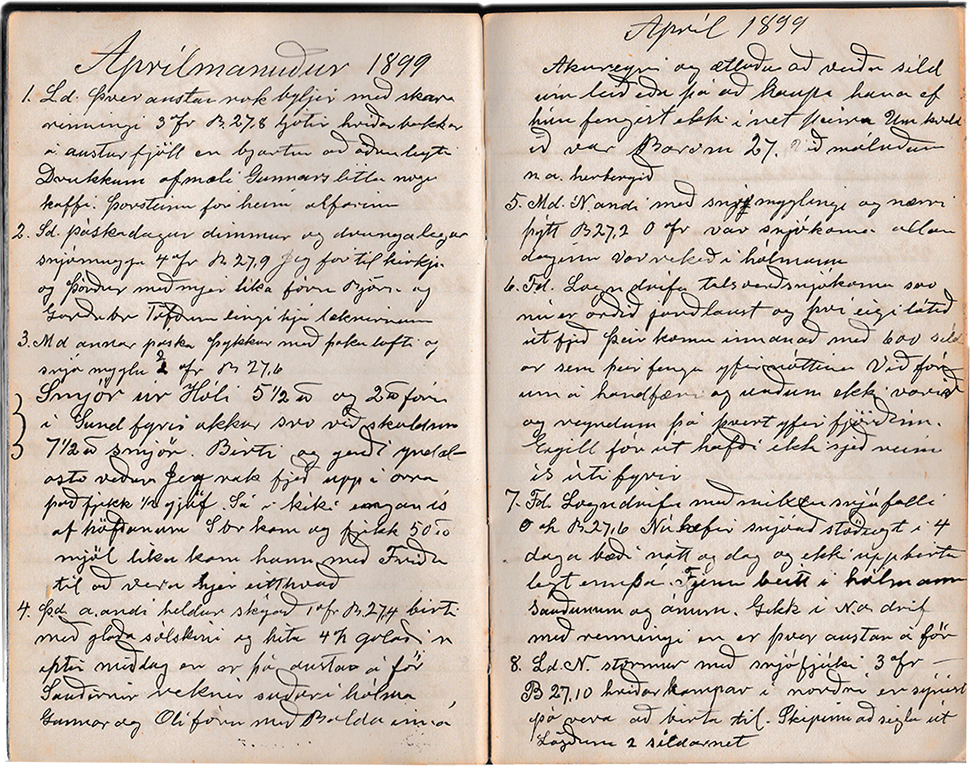 Aprílmánuður 1899
1. Ld. Þver austan rok byljir með skara
renningi 3° fr B. 27,8 ljótir hríðarbakkar
á austurfjöll en bjartur að öðru leyti
Drukkum afmæli Gunnars litla
kaffi. Þorsteinn fór heim alfarinn
2. Sd. páskadagur dimmur og drungalegur
snjómugga 4° fr B. 27,9 Jeg fór til kirkju
og Þórður með mjer líka fóru Björn og
lengi hjá lækninum
3. Md annar páska þykkur með þoku lofti og
snjó myglu 2 fr B 27,6
Smjör úr Hóli 5 1/2 ℔ og 2 ℔ fóru
í Sund fyrir okkur svo við skuldum
7 1/2 ℔ smjör. Birti og gerði yndæl
asta veður Jeg rak fjeð upp í
það fjekk 1/2 gjöf. Sá í kíki engan ís
af höfðanum kom og fjekk 50 ℔
mjöl líka kom hann með Fríðu
til að vera hjer
4. Þd a. andi heldur skýað 1° fr B. 27,4 birti
með glaða sólskini og hita 4 h golaði n
eptir miðdag en er þá austan á för
Sauðirnir reknir suður í hólma
Gunnar og Oli fóru með Balda inn á
Apríl 1899
Akureyri og ætluðu að veiða síld
um leið eða þá að kaupa hana ef
hún fengist ekki í net þeirra Um kveld
ið var Barom 27. Við máluðum
n.a. herbergið
5. Md. N. andi með snjó myglingi og nærri
þýtt B 27,2 0 fr var snjókoma allan
daginn var rekið í hólmann
6. Fd. Logndrífa talsverð snjókoma svo
nú er orðið jarðlaust og því eigi látið
út fjeð Þeir komu innan að með 600 síld
ar sem þeir fengu yfir nóttina Við fór
um á handfæri og urðum ekki varir
og reyndum þá þvert yfir fjörðinn.
Egill fór út hafði ekki sjeð neinn
ís úti fyrir
7. Fd. Logndrífa með miklu snjófalli
0 h B. 27,6 Nú hefir snjóað stöðugt í 4
daga bæði nótt og dag og ekki uppbirtu
legt enn þá. Fjenu beitt í hólmann
sauðunum og ánum. Gekk í N.a drif
með renningi en er þver austan á för
8. Ld. N. stormur með snjófjúki 3° fr —
B 27,10 hríðarkampar í norðri er sýnist
þó vera að birta til. Skipin að sigla út
Lögðum 2 síldarnet